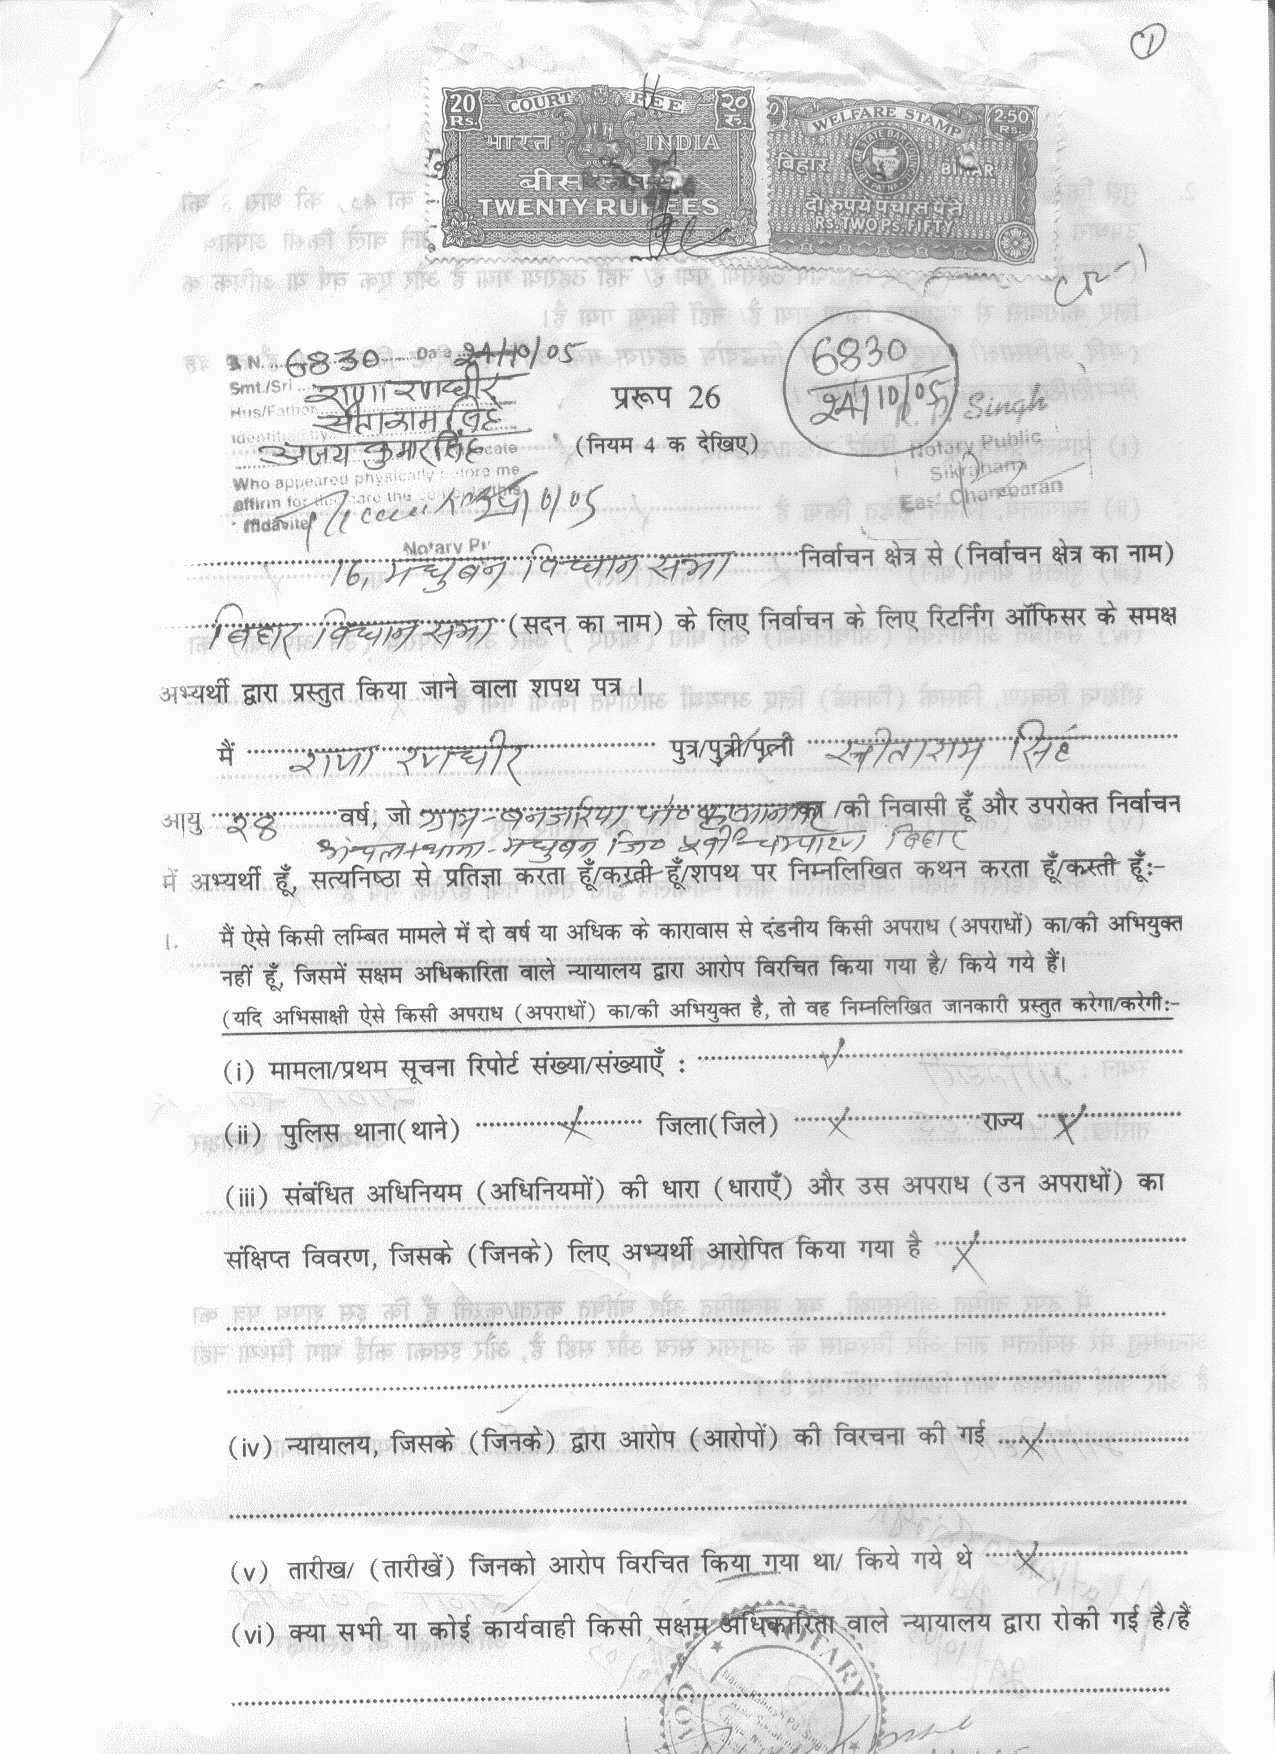 1
20 Rs. COURT FEE २० रु.
भारत INDIA
बीस रुपये
TWENTY RUPEES
WELFARE STAMP 2.50 Rs.
बिहार BIHAR
दो रुपये पचास पैसे
RS.TWO PS.FIFTY
S N. 6830 Date 24/10/05
Smt./Sri राणा रणधीर
Hus/Father सीताराम सिंह
Identified by अजय कुमार सिंह
Who appeared physically before me
affirm for the
ffidavite
/10/05
Notary
प्ररूप 26
(नियम 4 क देखिए)
6830
24/10/05
Singh
Notary Public
Sikrahana
East Champaran
16, मधुबन विधान सभा निर्वाचन क्षेत्र से (निर्वाचन क्षेत्र का नाम)
बिहार विधान सभा (सदन का नाम) के लिए निर्वाचन के लिए रिटर्निंग ऑफिसर के समक्ष
अभ्यर्थी द्वारा प्रस्तुत किया जाने वाला शपथ पत्र ।
मैं राणा रणधीर पुत्र/पुत्री/पत्नी सीताराम सिंह
आयु २८ वर्ष, जो ग्राम-बनजरिया पो० कृष्णानगर का/की निवासी हूँ और उपरोक्त निर्वाचन
अंचल+थाना-मधुबन जि० पूर्वी चम्पारण बिहार
में अभ्यर्थी हूँ, सत्यनिष्ठा से प्रतिज्ञा करता हूँ/करती हूँ/शपथ पर निम्नलिखित कथन करता हूँ/करती हूँ:-
1. मैं ऐसे किसी लम्बित मामले में दो वर्ष या अधिक के कारावास से दंडनीय किसी अपराध (अपराधों) का/की अभियुक्त
नहीं हूँ, जिसमें सक्षम अधिकारिता वाले न्यायालय द्वारा आरोप विरचित किया गया है/ किये गये हैं।
(यदि अभिसाक्षी ऐसे किसी अपराध (अपराधों) का/की अभियुक्त है, तो वह निम्नलिखित जानकारी प्रस्तुत करेगा/करेगी:-
(i) मामला/प्रथम सूचना रिपोर्ट संख्या/संख्याएँ :
(ii) पुलिस थाना(थाने) X जिला(जिले) X राज्य X
(iii) संबंधित अधिनियम (अधिनियमों) की धारा (धाराएँ) और उस अपराध (उन अपराधों) का
संक्षिप्त विवरण, जिसके (जिनके) लिए अभ्यर्थी आरोपित किया गया है X
(iv) न्यायालय, जिसके (जिनके) द्वारा आरोप (आरोपों) की विरचना की गई X
(v) तारीख/ (तारीखें) जिनको आरोप विरचित किया गया था/ किये गये थे X
(vi) क्या सभी या कोई कार्यवाही किसी सक्षम अधिकारिता वाले न्यायालय द्वारा रोकी गई है/हैं
NOTARY